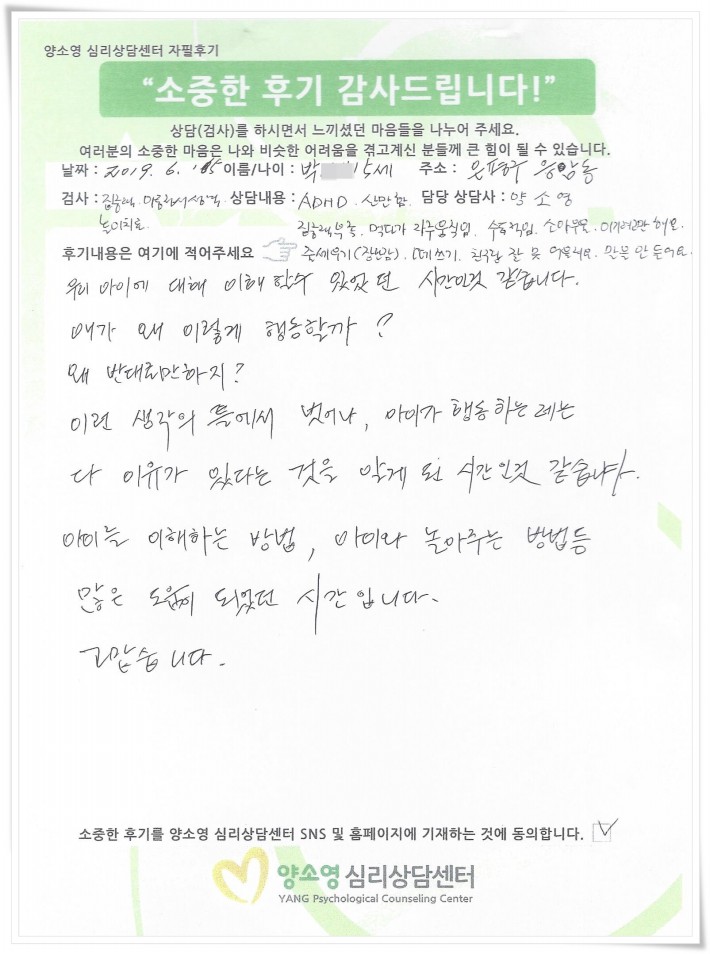 양소영 심리상담센터 자필후기
“소중한 후기 감사드립니다!”
상담(검사)를 하시면서 느끼셨던 마음들을 나누어 주세요.
여러분의 소중한 마음은 나와 비슷한 어려움을 겪고계신 분들께 큰 힘이 될 수 있습니다.
날짜 : 2019. 6. 이름/나이 : 박 15세 주소 : 은평구 응암동
검사 : 집중력. 상담내용 : ADHD. 산만함. 담당 상담사 : 양 소 영
놀이치료. 집중력부족. 멍때리 자주움직임. 수업적임.
후기내용은 여기에 적어주세요 줄세우기(장난감). 떼쓰기. 친구랑 잘 못 어울려요. 말을 안 들어요.
우리 아이에 대해 이해 할수 있었던 시간인것 같습니다.
얘가 왜 이렇게 행동할까?
왜 반대로만하지?
이런 생각의 틀에서 벗어나, 아이가 행동하는데는
다 이유가 있다는 것을 알게 된 시간인것 같습니다.
아이를 이해하는 방법, 아이와 놀아주는 방법등
많은 도움이 되었던 시간입니다.
고맙습니다.
소중한 후기를 양소영 심리상담센터 SNS 및 홈페이지에 기재하는 것에 동의합니다.
양소영 심리상담센터
YANG Psychological Counseling Center